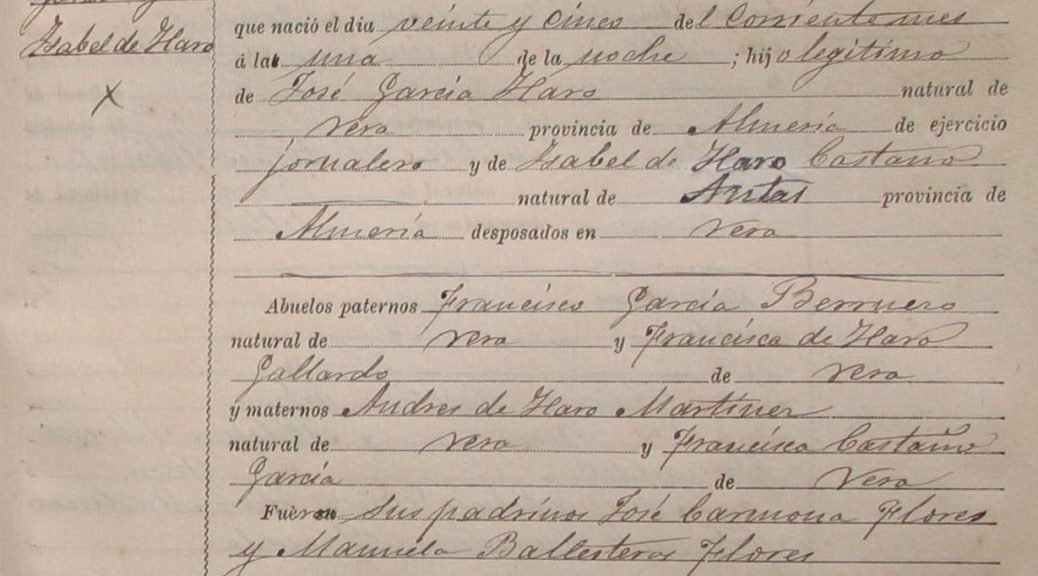 Isabel de Haro
que nació el dia veinte y cinco del Corriente mes
á la una de la noche; hijo legítimo
de José García Haro natural de
Vera provincia de Almería de ejercicio
jornalero y de Isabel de Haro Castaño
natural de Antas provincia de
Almería desposados en Vera
Abuelos paternos Francisco García Berruezo
natural de Vera y Francisca de Haro
Gallardo de Vera
y maternos Andres de Haro Martinez
natural de Vera y Francisca Castaño
García de Vera
Fueron sus padrinos José Carmona Flores
y Manuela Ballesteros Flores